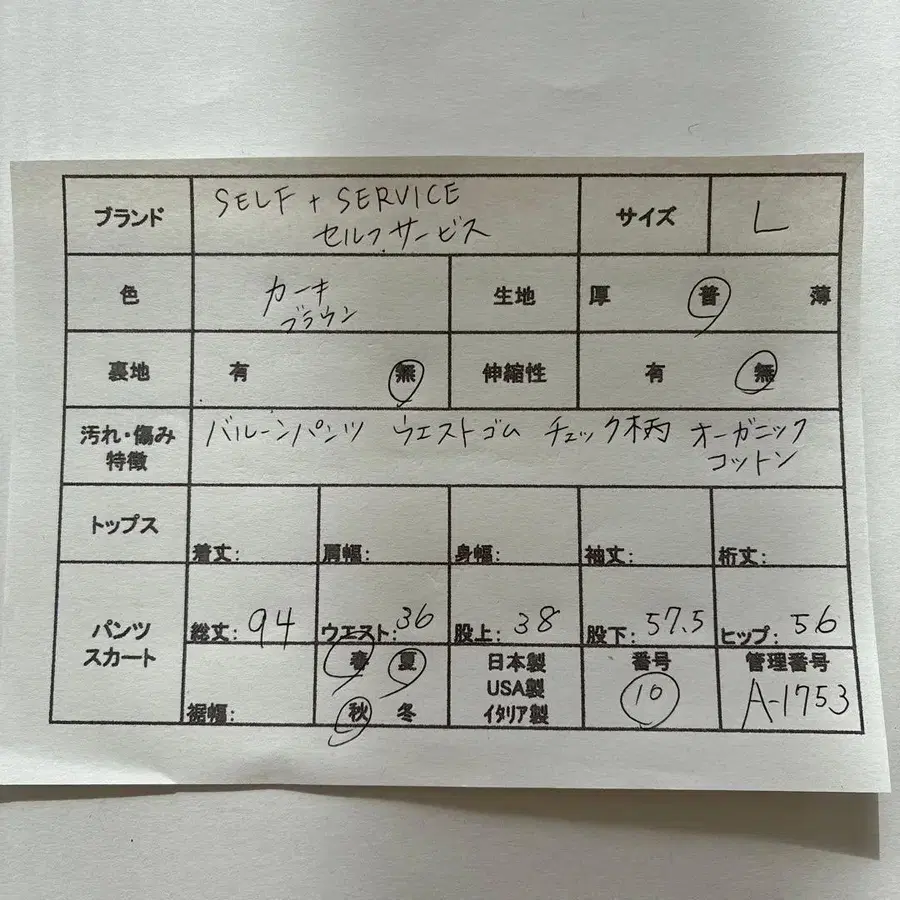 ブランド SELF + SERVICE サイズ L
セルフサービス
色 カーキ 生地 厚 普 薄
ブラウン
裏地 有 無 伸縮性 有 無
汚れ・傷み バルーンパンツ ウエストゴム チェック柄 オーガニック
特徴 コットン
トップス
着丈: 肩幅: 身幅: 袖丈: 裄丈:
パンツ 総丈: 94 ウエスト: 36 股上: 38 股下: 57.5 ヒップ: 56
スカート 春 夏 日本製 番号 管理番号
USA製 10 A-1753
裾幅: 秋 冬 イタリア製